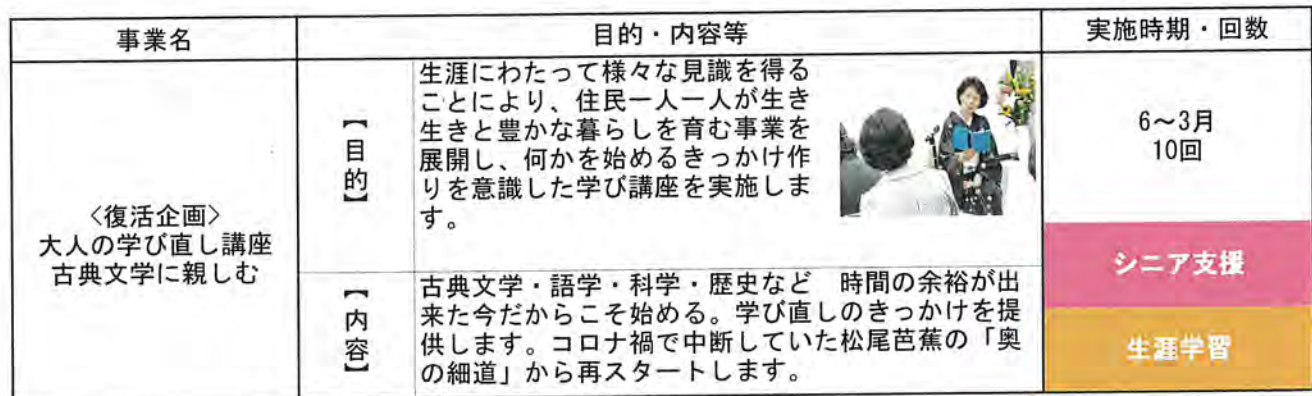 事業名
目的・内容等
実施時期・回数
〈復活企画〉
大人の学び直し講座
古典文学に親しむ
【目的】
生涯にわたって様々な見識を得る
ことにより、住民一人一人が生き
生きと豊かな暮らしを育む事業を
展開し、何かを始めるきっかけ作
りを意識した学び講座を実施しま
す。
【内容】
古典文学・語学・科学・歴史など　時間の余裕が出
来た今だからこそ始める。学び直しのきっかけを提
供します。コロナ禍で中断していた松尾芭蕉の「奥
の細道」から再スタートします。
6～3月
10回
シニア支援
生涯学習